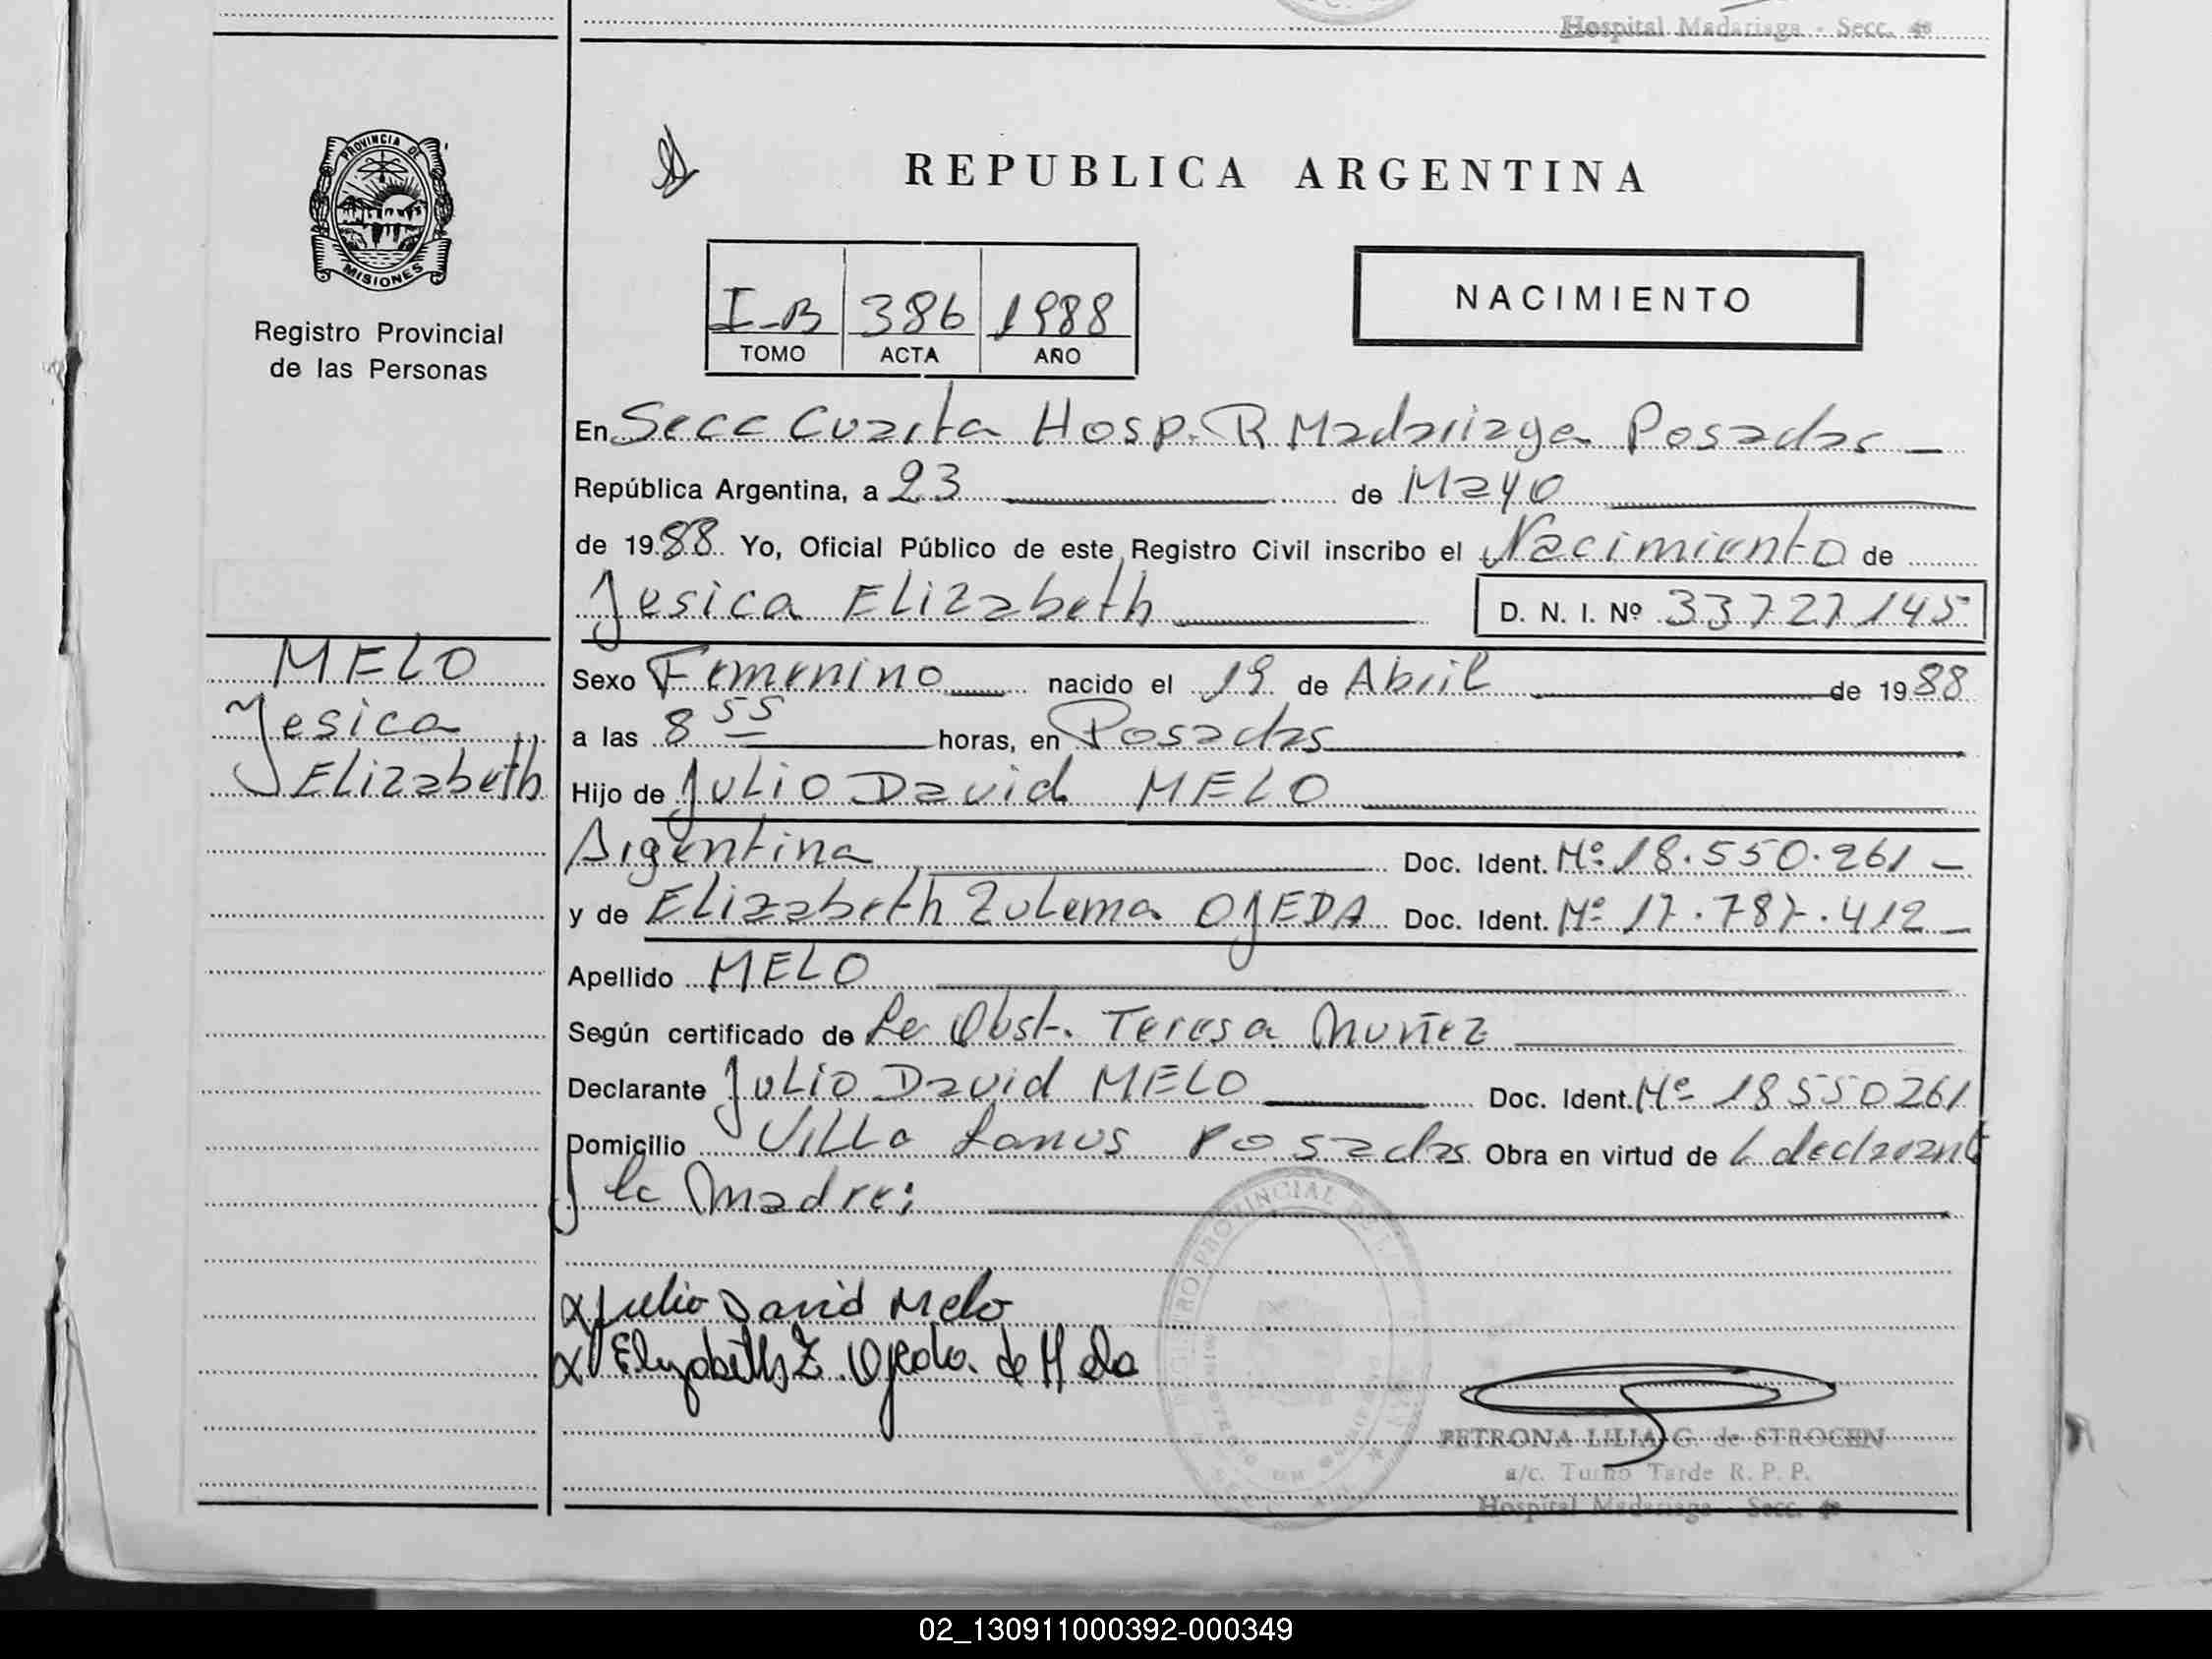 Hospital Madariaga - Secc. 4ª
PROVINCIA DE
MISIONES
Registro Provincial
de las Personas
REPUBLICA ARGENTINA
I-B 386 1988
TOMO ACTA AÑO
NACIMIENTO
En Secc Cuarta Hosp. R Madariaga Posadas
República Argentina, a 23 de Mayo
de 1988 Yo, Oficial Público de este Registro Civil inscribo el Nacimiento de
Jesica Elizabeth D. N. I. Nº 33727145
MELO
Jesica
Elizabeth
Sexo Femenino nacido el 19 de Abril de 1988
a las 8 55 horas, en Posadas
Hijo de Julio David MELO
Argentina Doc. Ident. Nº 18.550.261
y de Elizabeth Zulema OJEDA Doc. Ident. Nº 17.787.412
Apellido MELO
Según certificado de La Obst. Teresa Muñez
Declarante Julio David MELO Doc. Ident. Nº 18550261
Domicilio Villa Lanus Posadas Obra en virtud de declarante
y la Madre:
Julio David Melo
Elizabeth Z. Ojeda de Melo
PETRONA LILIA G. de STROCEN
a/c. Turno Tarde R. P. P.
Hospital Madariaga - Secc. 4ª
02_130911000392-000349